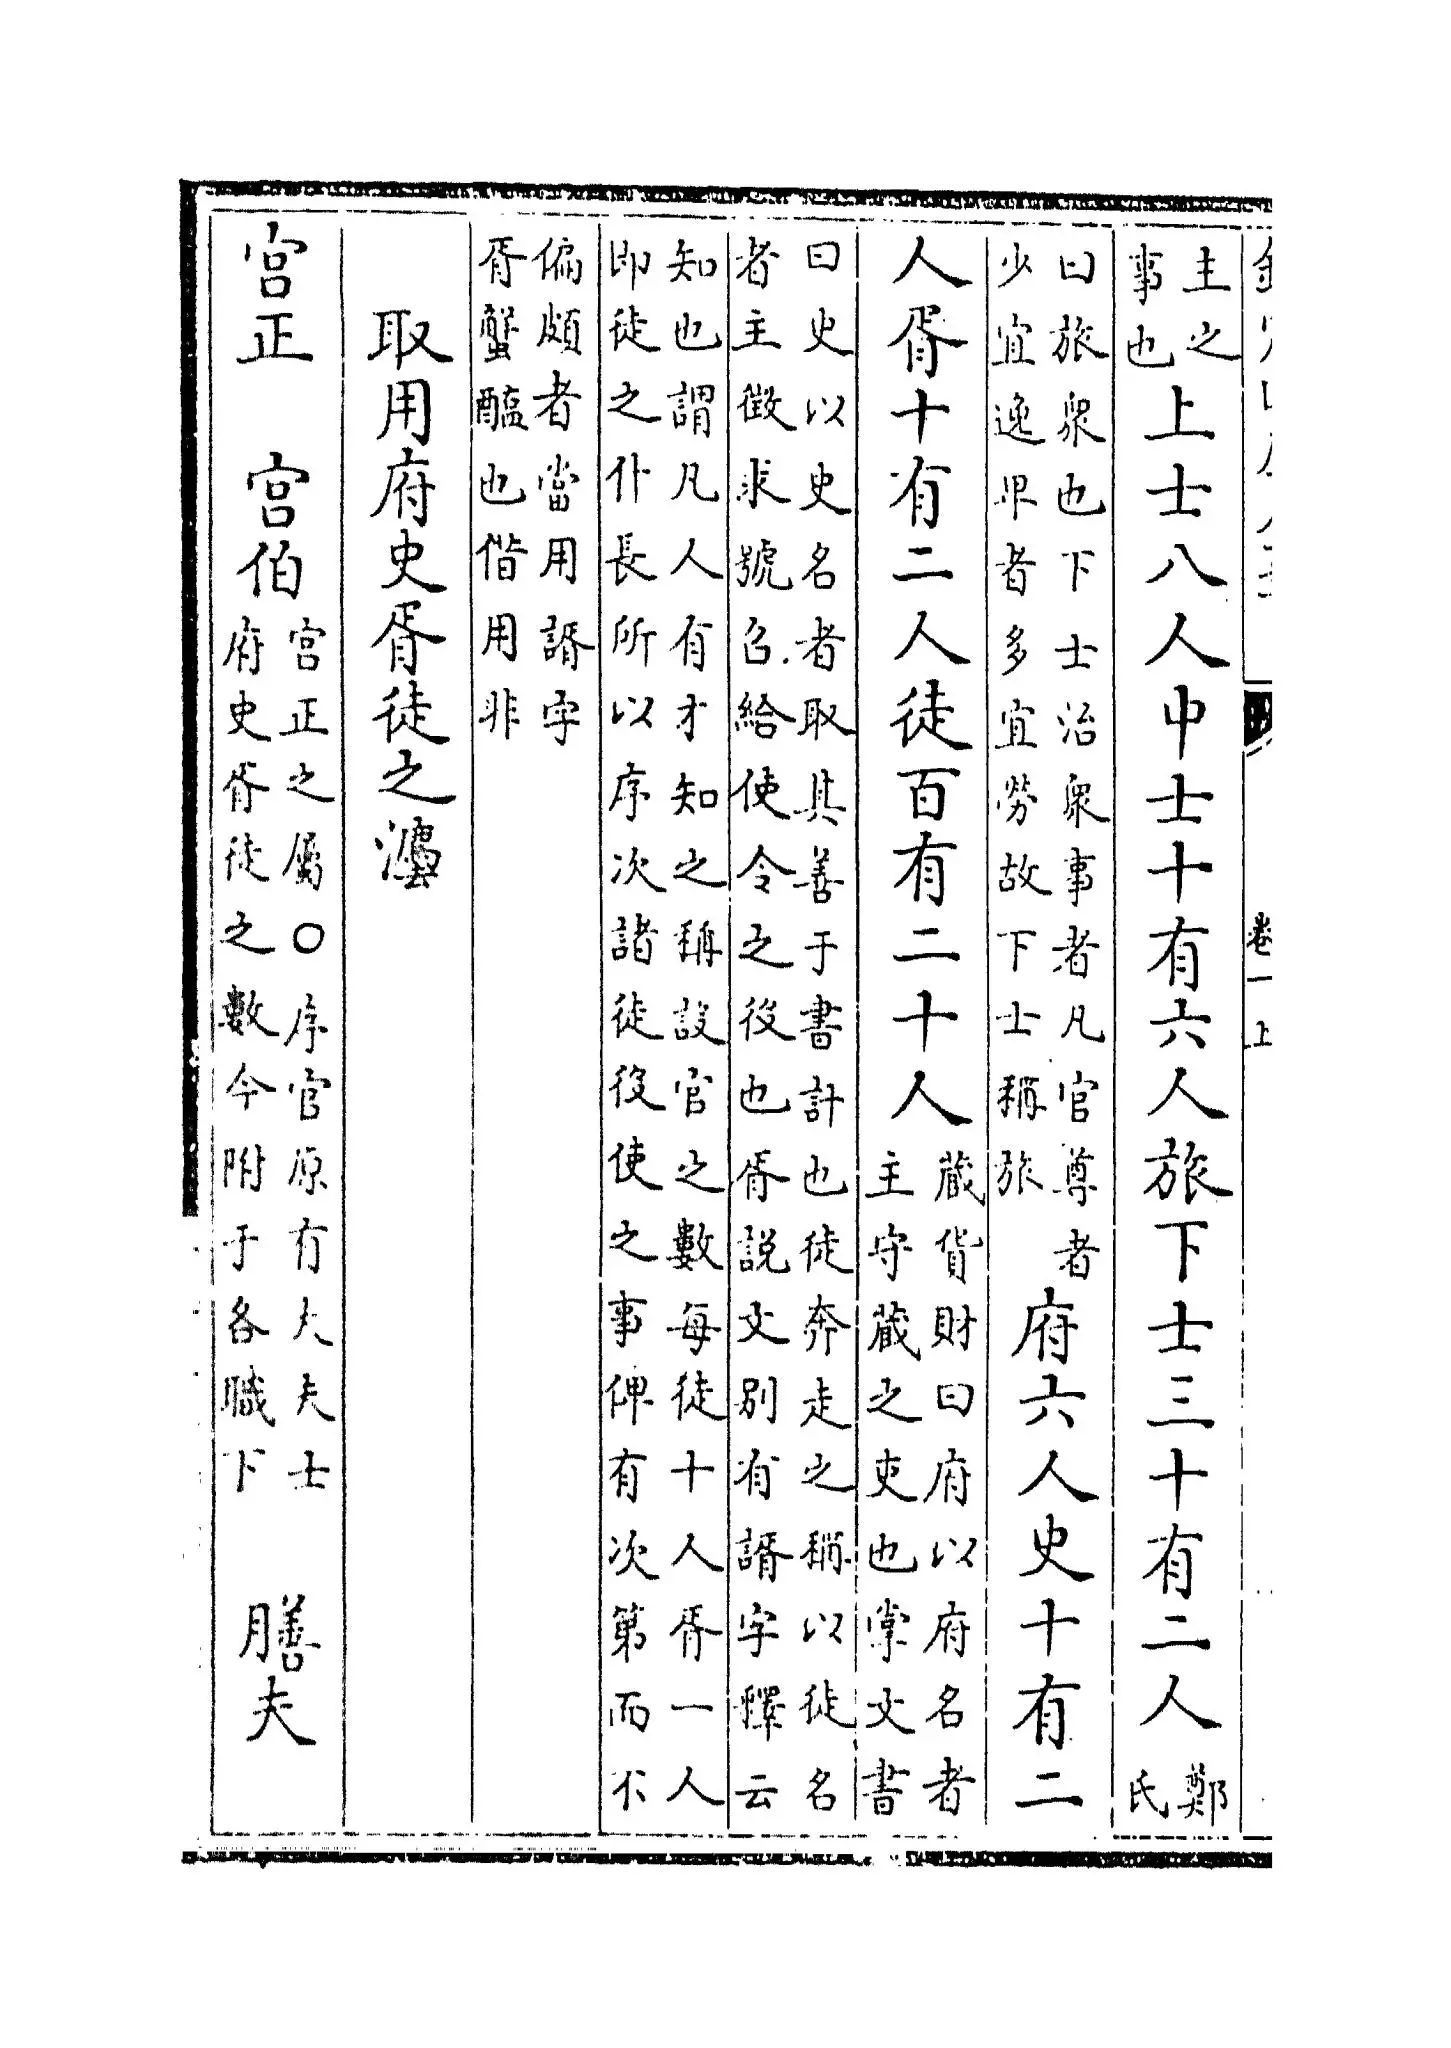 卷一上
主之
事也
上士八人中士十有六人旅下士三十有二人
鄭
氏
曰旅衆也下士治衆事者凡官尊者
少宜逸卑者多宜勞故下士稱旅
府六人史十有二
人胥十有二人徒百有二十人
藏貨財曰府以府名者
主守藏之吏也掌文書
曰史以史名者取其善于書計也徒奔走之稱以徒名
者主徵求號召給使令之役也胥説文别有諝字釋云
知也謂凡人有才知之稱設官之數每徒十人胥一人
即徒之什長所以序次諸徒役使之事俾有次第而不
偏頗者當用諝字
胥蟹醢也偕用非
取用府史胥徒之灋
宫正　宫伯
宫正之屬○序官原有大夫士
府史胥徒之數今附于各職下
膳夫